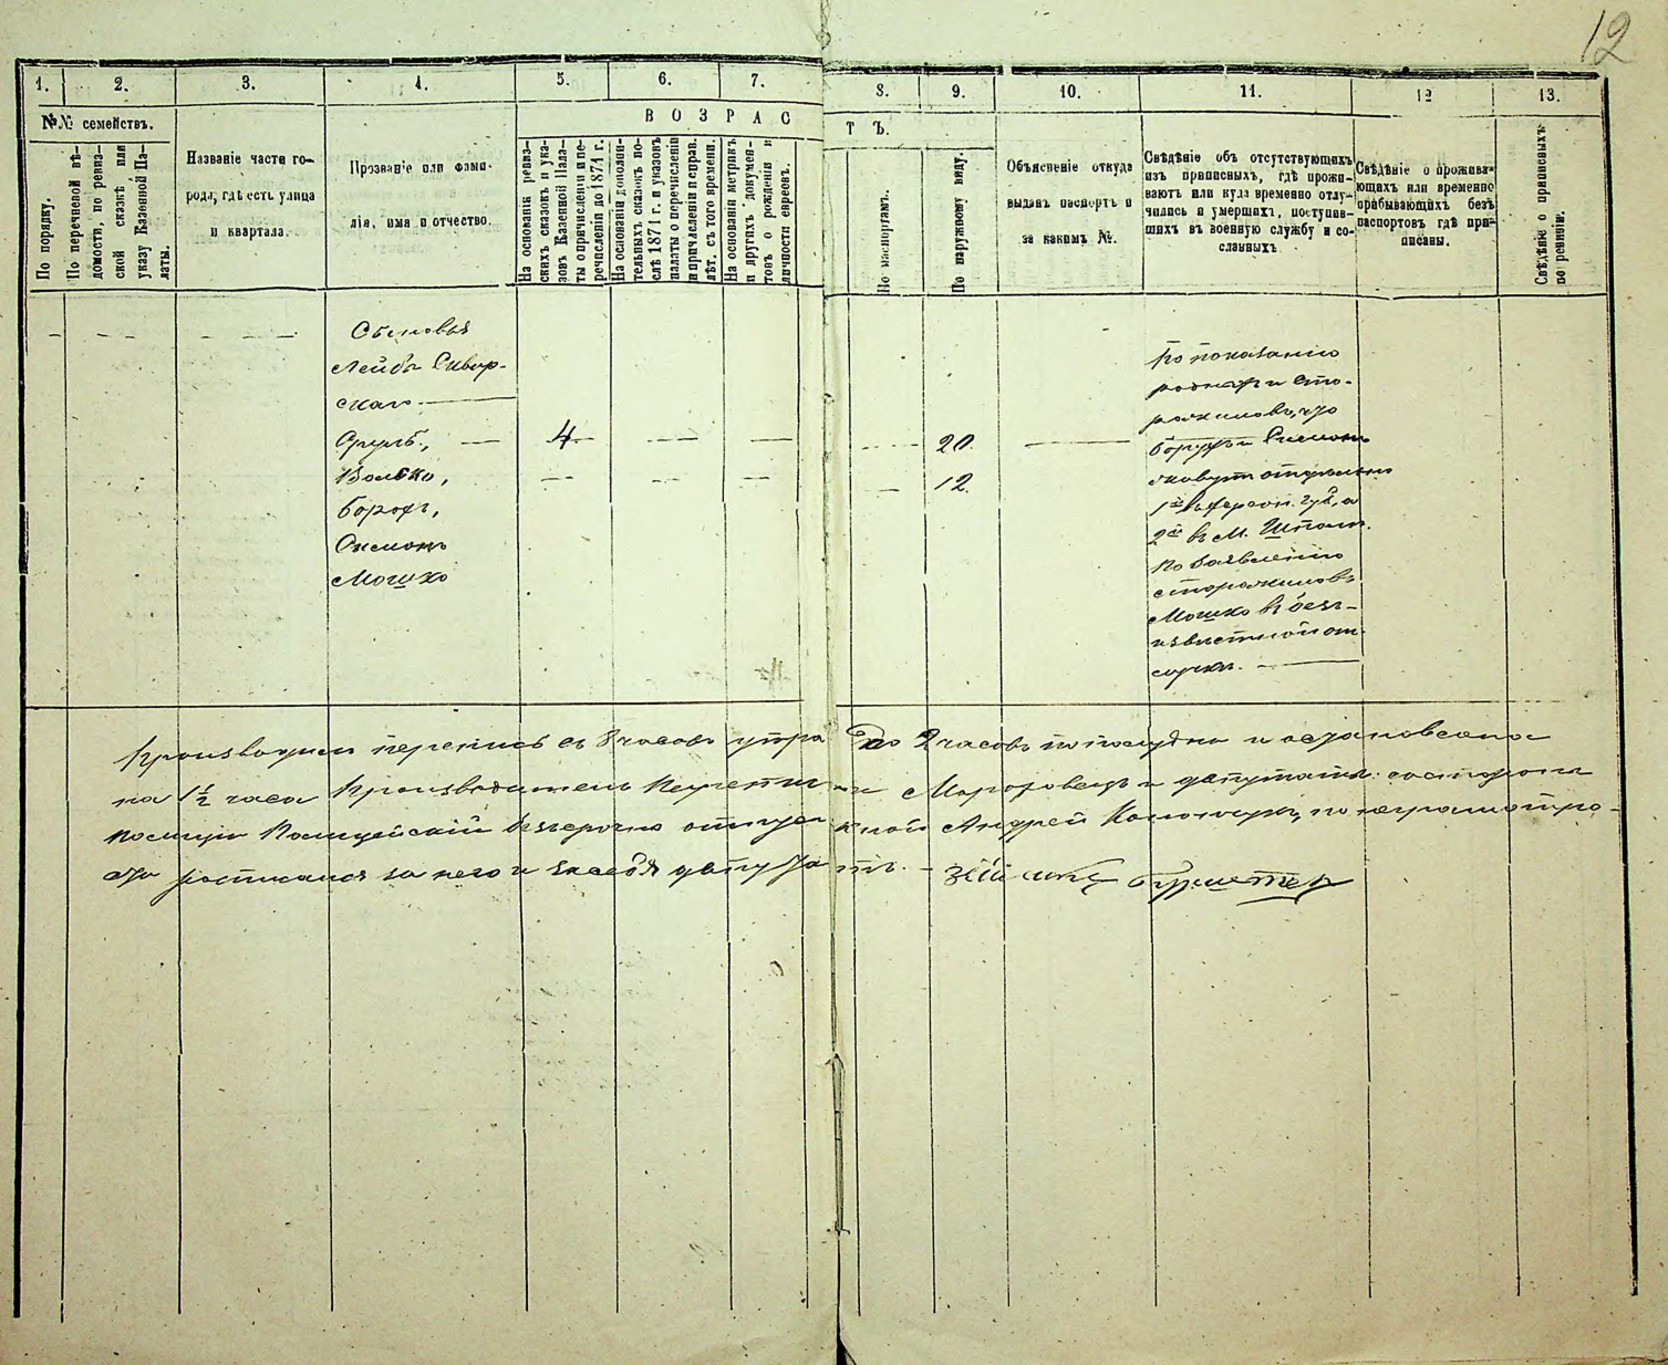 12
1.
2.
3.
4.
5.
6.
7.
8.
9.
10.
11.
12
13.
№№ семействъ.
В О З Р А С
Т Ъ.
По порядку.
По перечневой вѣ-
домости, по ревиз-
ской сказкѣ или
указу Казенной Па-
латы.
Названіе части го-
рода, гдѣ есть улица
и квартала.
Прозваніе или фами-
лія, имя и отчество.
На основаніи ревиз-
скихъ сказокъ и ука-
зовъ Казенной Пала-
ты о причисленіи и пе-
речисленіи до 1874 г.
На основаніи дополни-
тельныхъ сказокъ по-
слѣ 1874 г. и указовъ
палаты о перечисленіи
и причисленіи исправ.
лѣт. съ того времени.
На основаніи метрикъ
и другихъ докумен-
товъ о рожденіи и
личности евреевъ.
По паспортамъ.
По наружному виду.
Объясненіе откуда
выданъ паспортъ и
за какимъ №.
Свѣдѣніе объ отсутствующихъ
изъ приписныхъ, гдѣ прожи-
ваютъ или куда временно отлу-
чились и умершихъ, поступив-
шихъ въ военную службу и со-
сланныхъ
Свѣдѣніе о прожива-
ющихъ или временно
пребывающихъ безъ
паспортовъ гдѣ при-
писаны.
Свѣдѣніе о
по ревизіи.
Сыновья
Лейбы Сквир-
скаго
Сруль, 4 20.
Волько, 12.
Борохъ,
Мошко
По показанію
родныхъ и сто-
рожиловъ, что
Борухъ и
живутъ отдѣльно
1й въ Херсон. губ., а
2й въ М. Шпола.
По заявленію
сторожиловъ
Мошко въ безъ-
извѣстной от-
лучкѣ.
Производилъ перепись съ 8 часовъ утра до 2 часовъ пополудни и остановлена
на 1½ часа Производитель и депутаты: со стороны
полиціи Полицейскій Андрей по неграмотно-
росписался за него и за себя депутатъ.